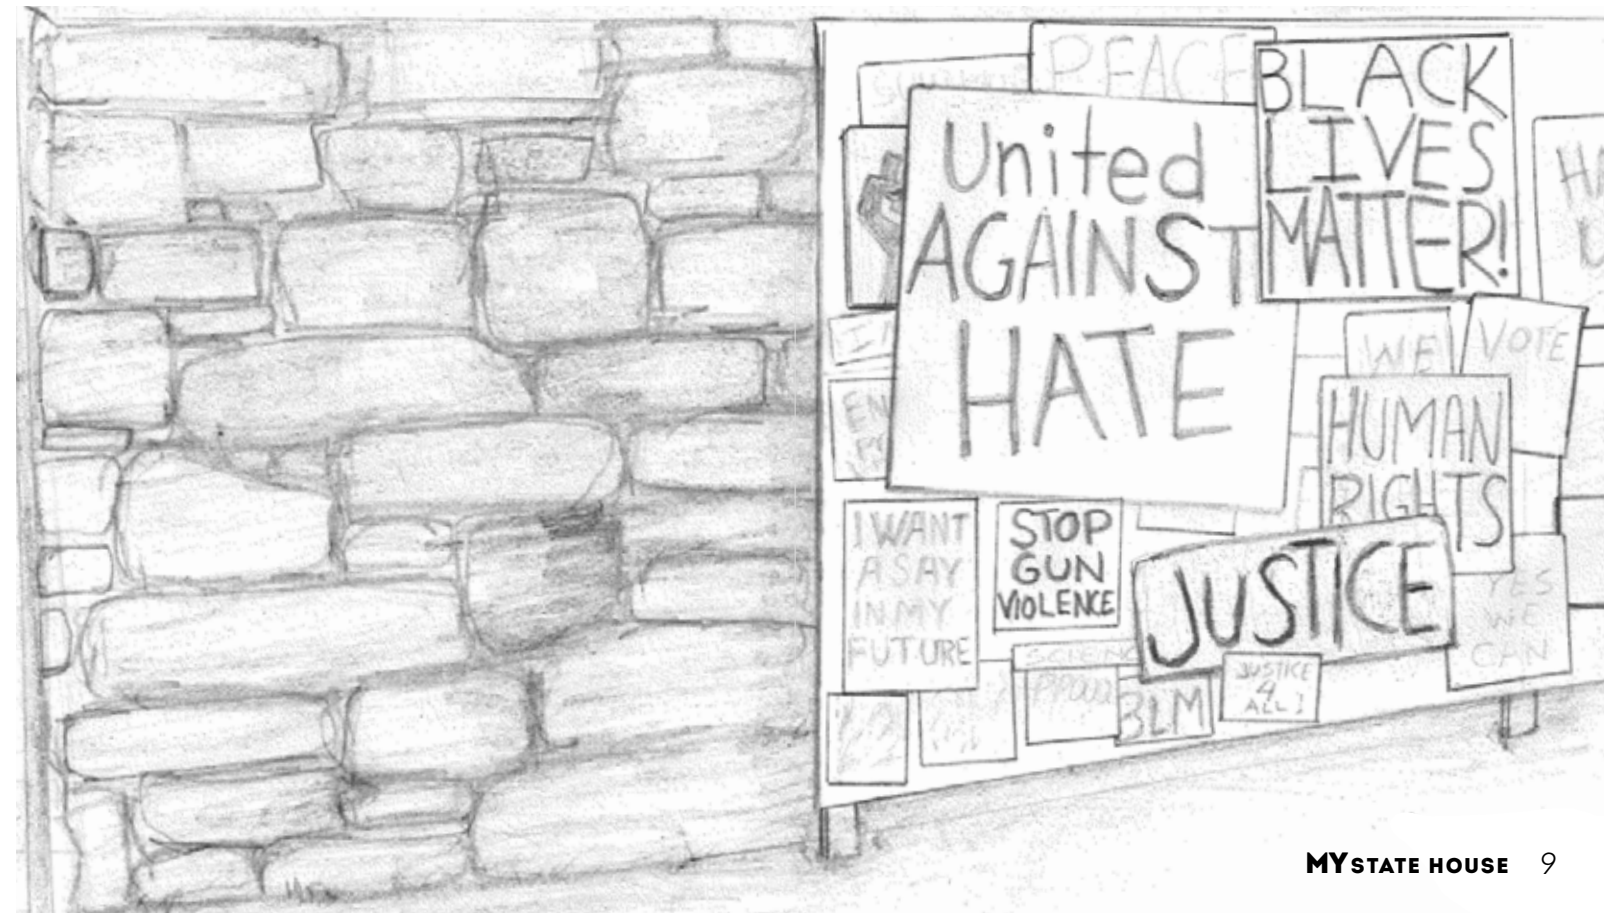 PEACE
BLACK
LIVES
MATTER!
United
AGAINST
HATE
WE
VOTE
HUMAN
RIGHTS
I WANT
A SAY
IN MY
FUTURE
STOP
GUN
VIOLENCE
JUSTICE
YES
WE
CAN
BLM
JUSTICE
4
ALL!
MY STATE HOUSE 9